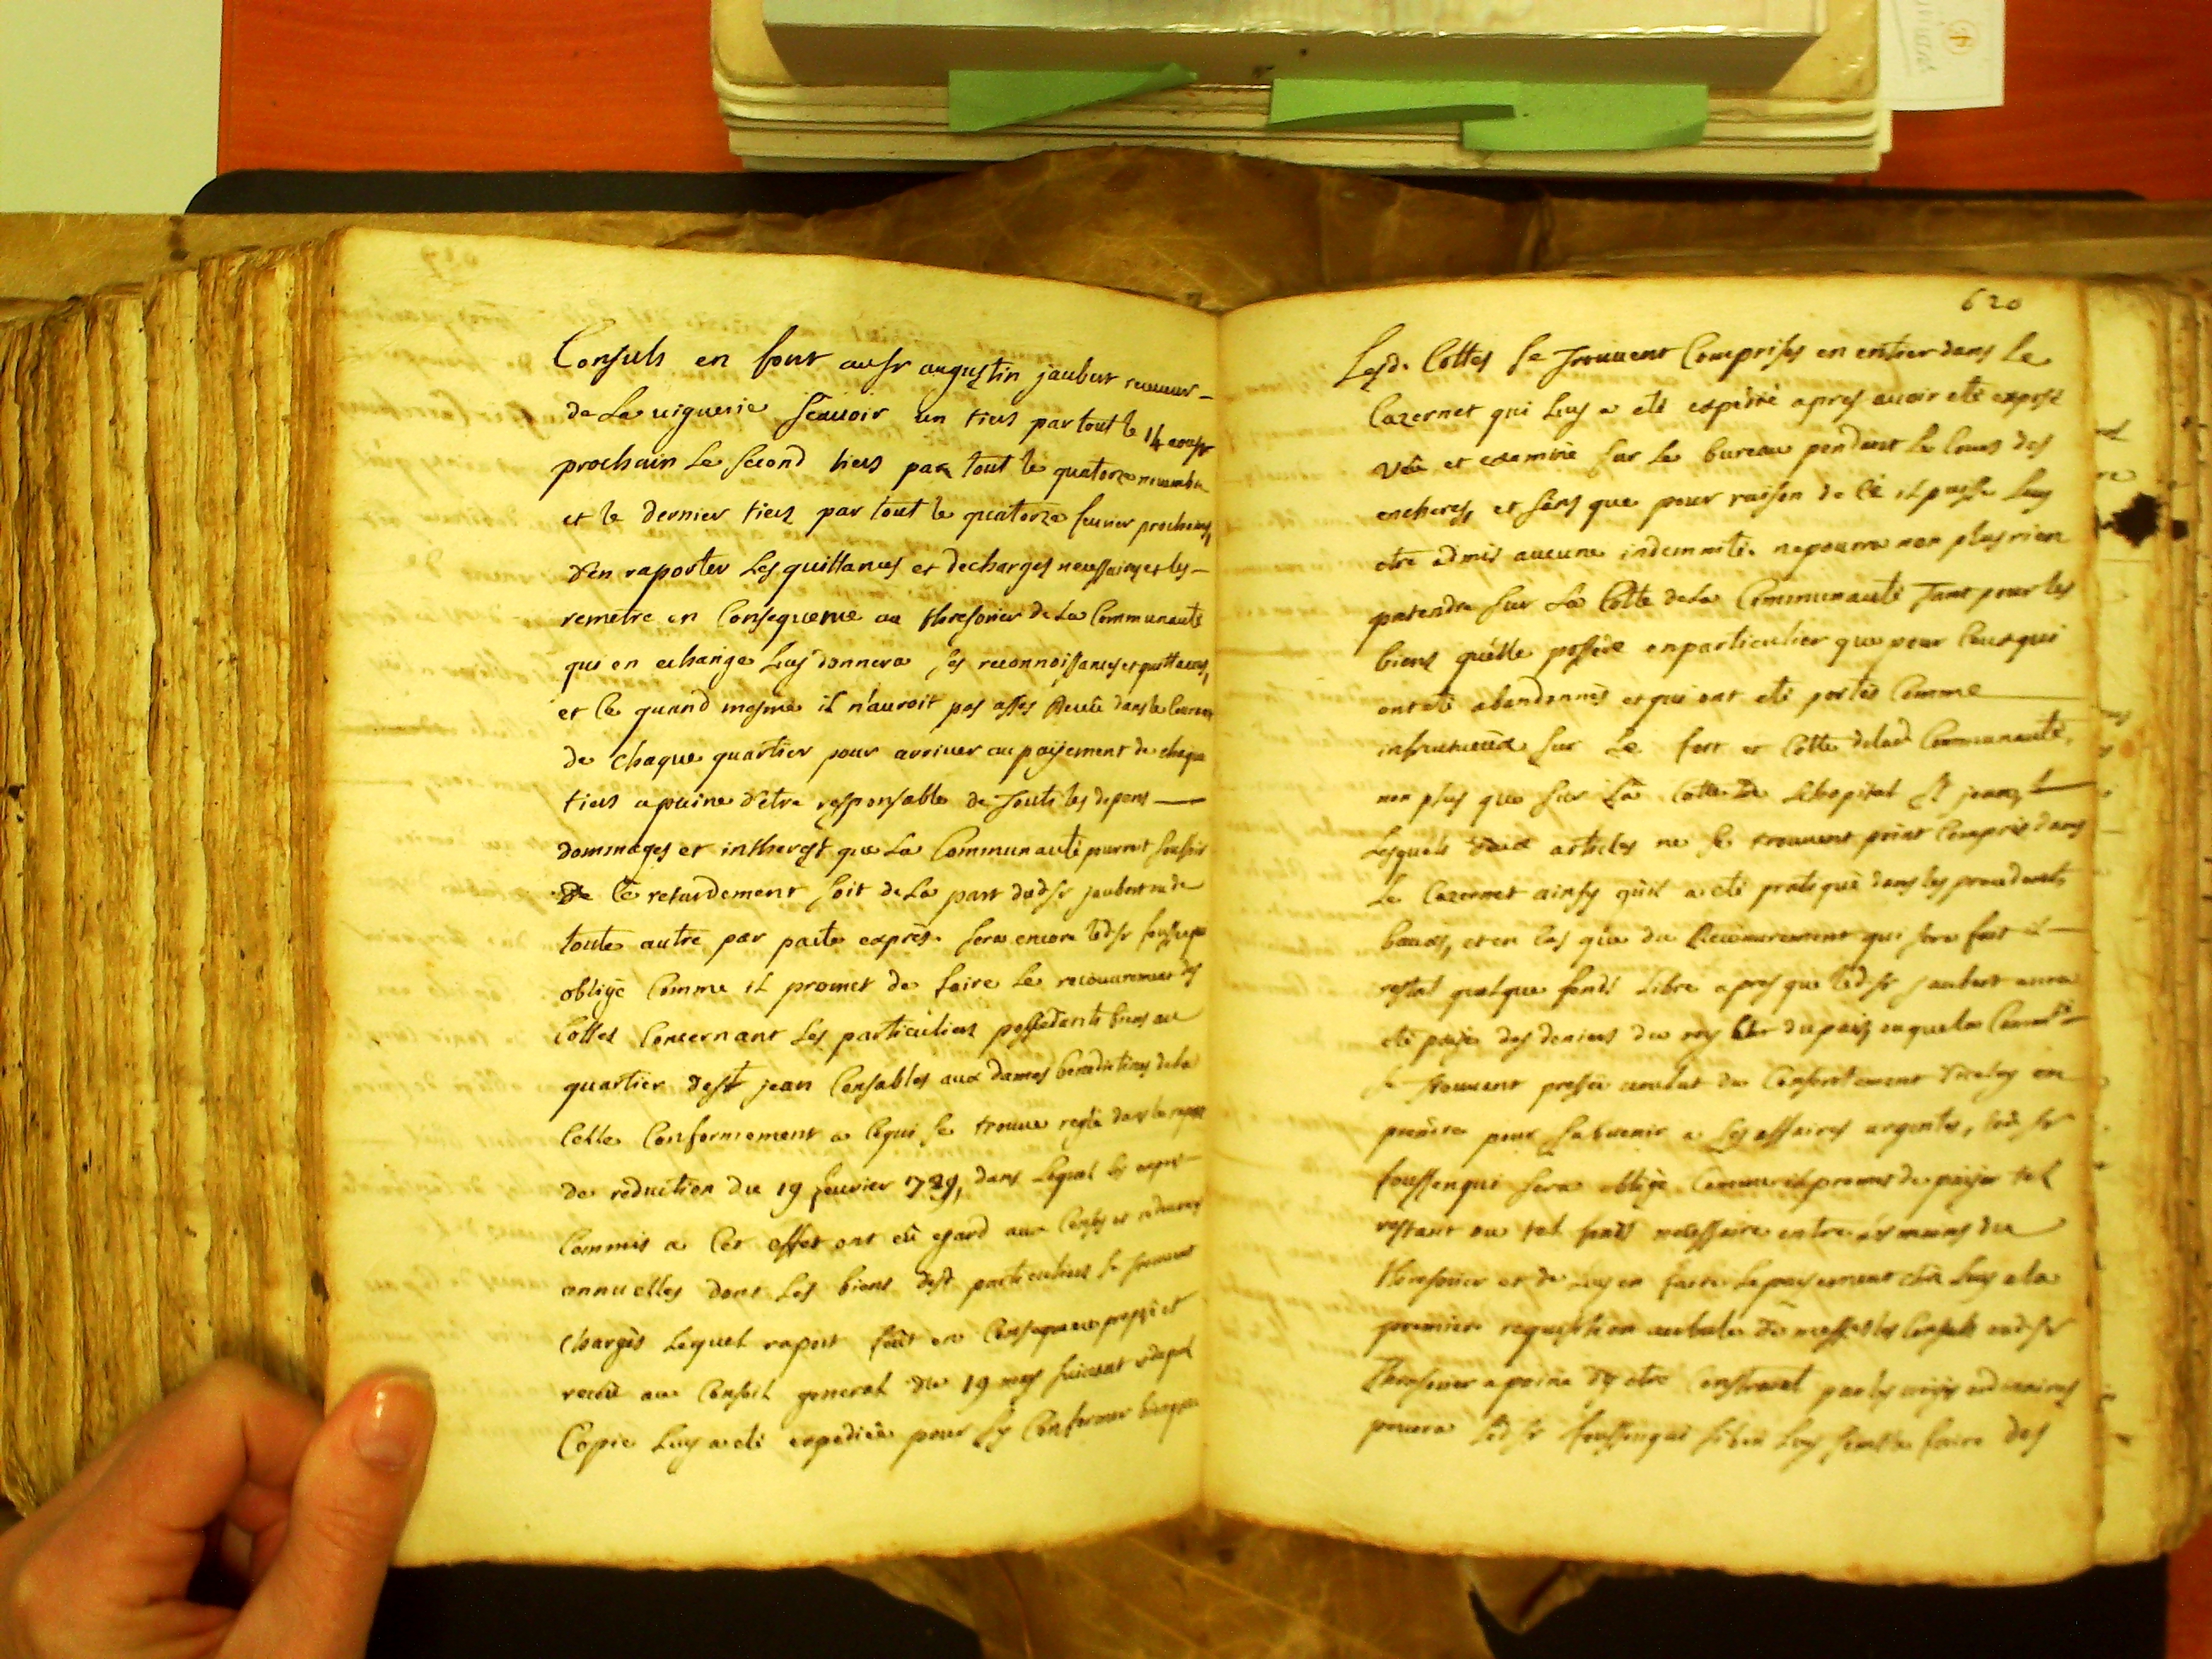 Consuls en font au sr augustin jaubert receveur
de La viguerie scavoir un tiers par tout le 14 aoust
prochain Le second tiers par tout le quatorze novembre
et le dernier tiers par tout le quatorze fevrier prochains,
d'en raporter Les quittances et decharges necessaires et les
remetre en Consequence au thresorier de La Communauté
qui en echange Luy donnera ses reconnoissances et quittances,
et ce quand mesme il n'auroit pas assés Receu dans le courant
de chaque quartier pour arriver au payement de chaque
tiers a paine d'etre responsable de touts les depens
dommages et intherest que La Communauté pourrot souffrir
De ce retardement soit de La part dud sr jaubert ou de
toute autre par pacte exprés. sera encore led sr foussenqui
obligé Comme il promet de faire Le recouvrement des
Cottes Concernant Les particuliers possedants biens au
quartier de st jean Censables aux dames benedictines de la
Celle Conformement a Ce qui se trouve reglé dans le raport
de reduction du 19 fevrier 1729, dans Lequel les expers
Commis a Cet effet ont eû egard aux Censes et redevances
annuelles dont Les biens desd particuliers se trouvent
chargés Lequel raport fût en Consequence
receû au Conseil general du 19 may suivant
Copie Luy a eté expediée pour s'y Conformer
620
Lesd. Cottes se trouvent Comprises en entier dans Le
Cazernet qui Luy a eté expedié apres avoir eté exposé
Veû et examiné sur Le bureau pendant Le Cours des
encheres, et sans que pour raison de Ce il puisse Luy
etre admis aucune indemnité. ne pourra non plus rien
pretendre sur La Cotte de La Communauté Tant pour les
biens qu'elle possede en particulier que pour Ceux qui
ont eté abandonnés et qui ont eté portés Comme
infructueux sur Le fort et Cotte de lad Communauté,
non plus que sur La Cotte De Lhopital St jean,
Lesquels deux articles ne se trouvent point Compris dans
Le Cazernet ainsy qu'il a eté pratiqué dans les precedants
baux, et en Cas que du Recouvrement qui sera fait il
restat quelque fonds Libre apres que led sr jaubert aura
eté payé des deniers du roy et du païs ou que la Commté
se trouvant pressée au dut du Consentement d'iceluy en
prendre pour subvenir a Ses affaires urgentes, led sr
foussenqui sera obligé Comme il promet de payer tel
restant ou tel fonds necessaire entre les mains du
thresorier et de Luy en faire Le payement chés Luy a la
premiere requisition verbale de mess. les Consuls ou d. sr
Thresorier a paine d'y etre Constraint par les voyes ordinaires
pourra led sr foussenqui si bon Luy semble faire des